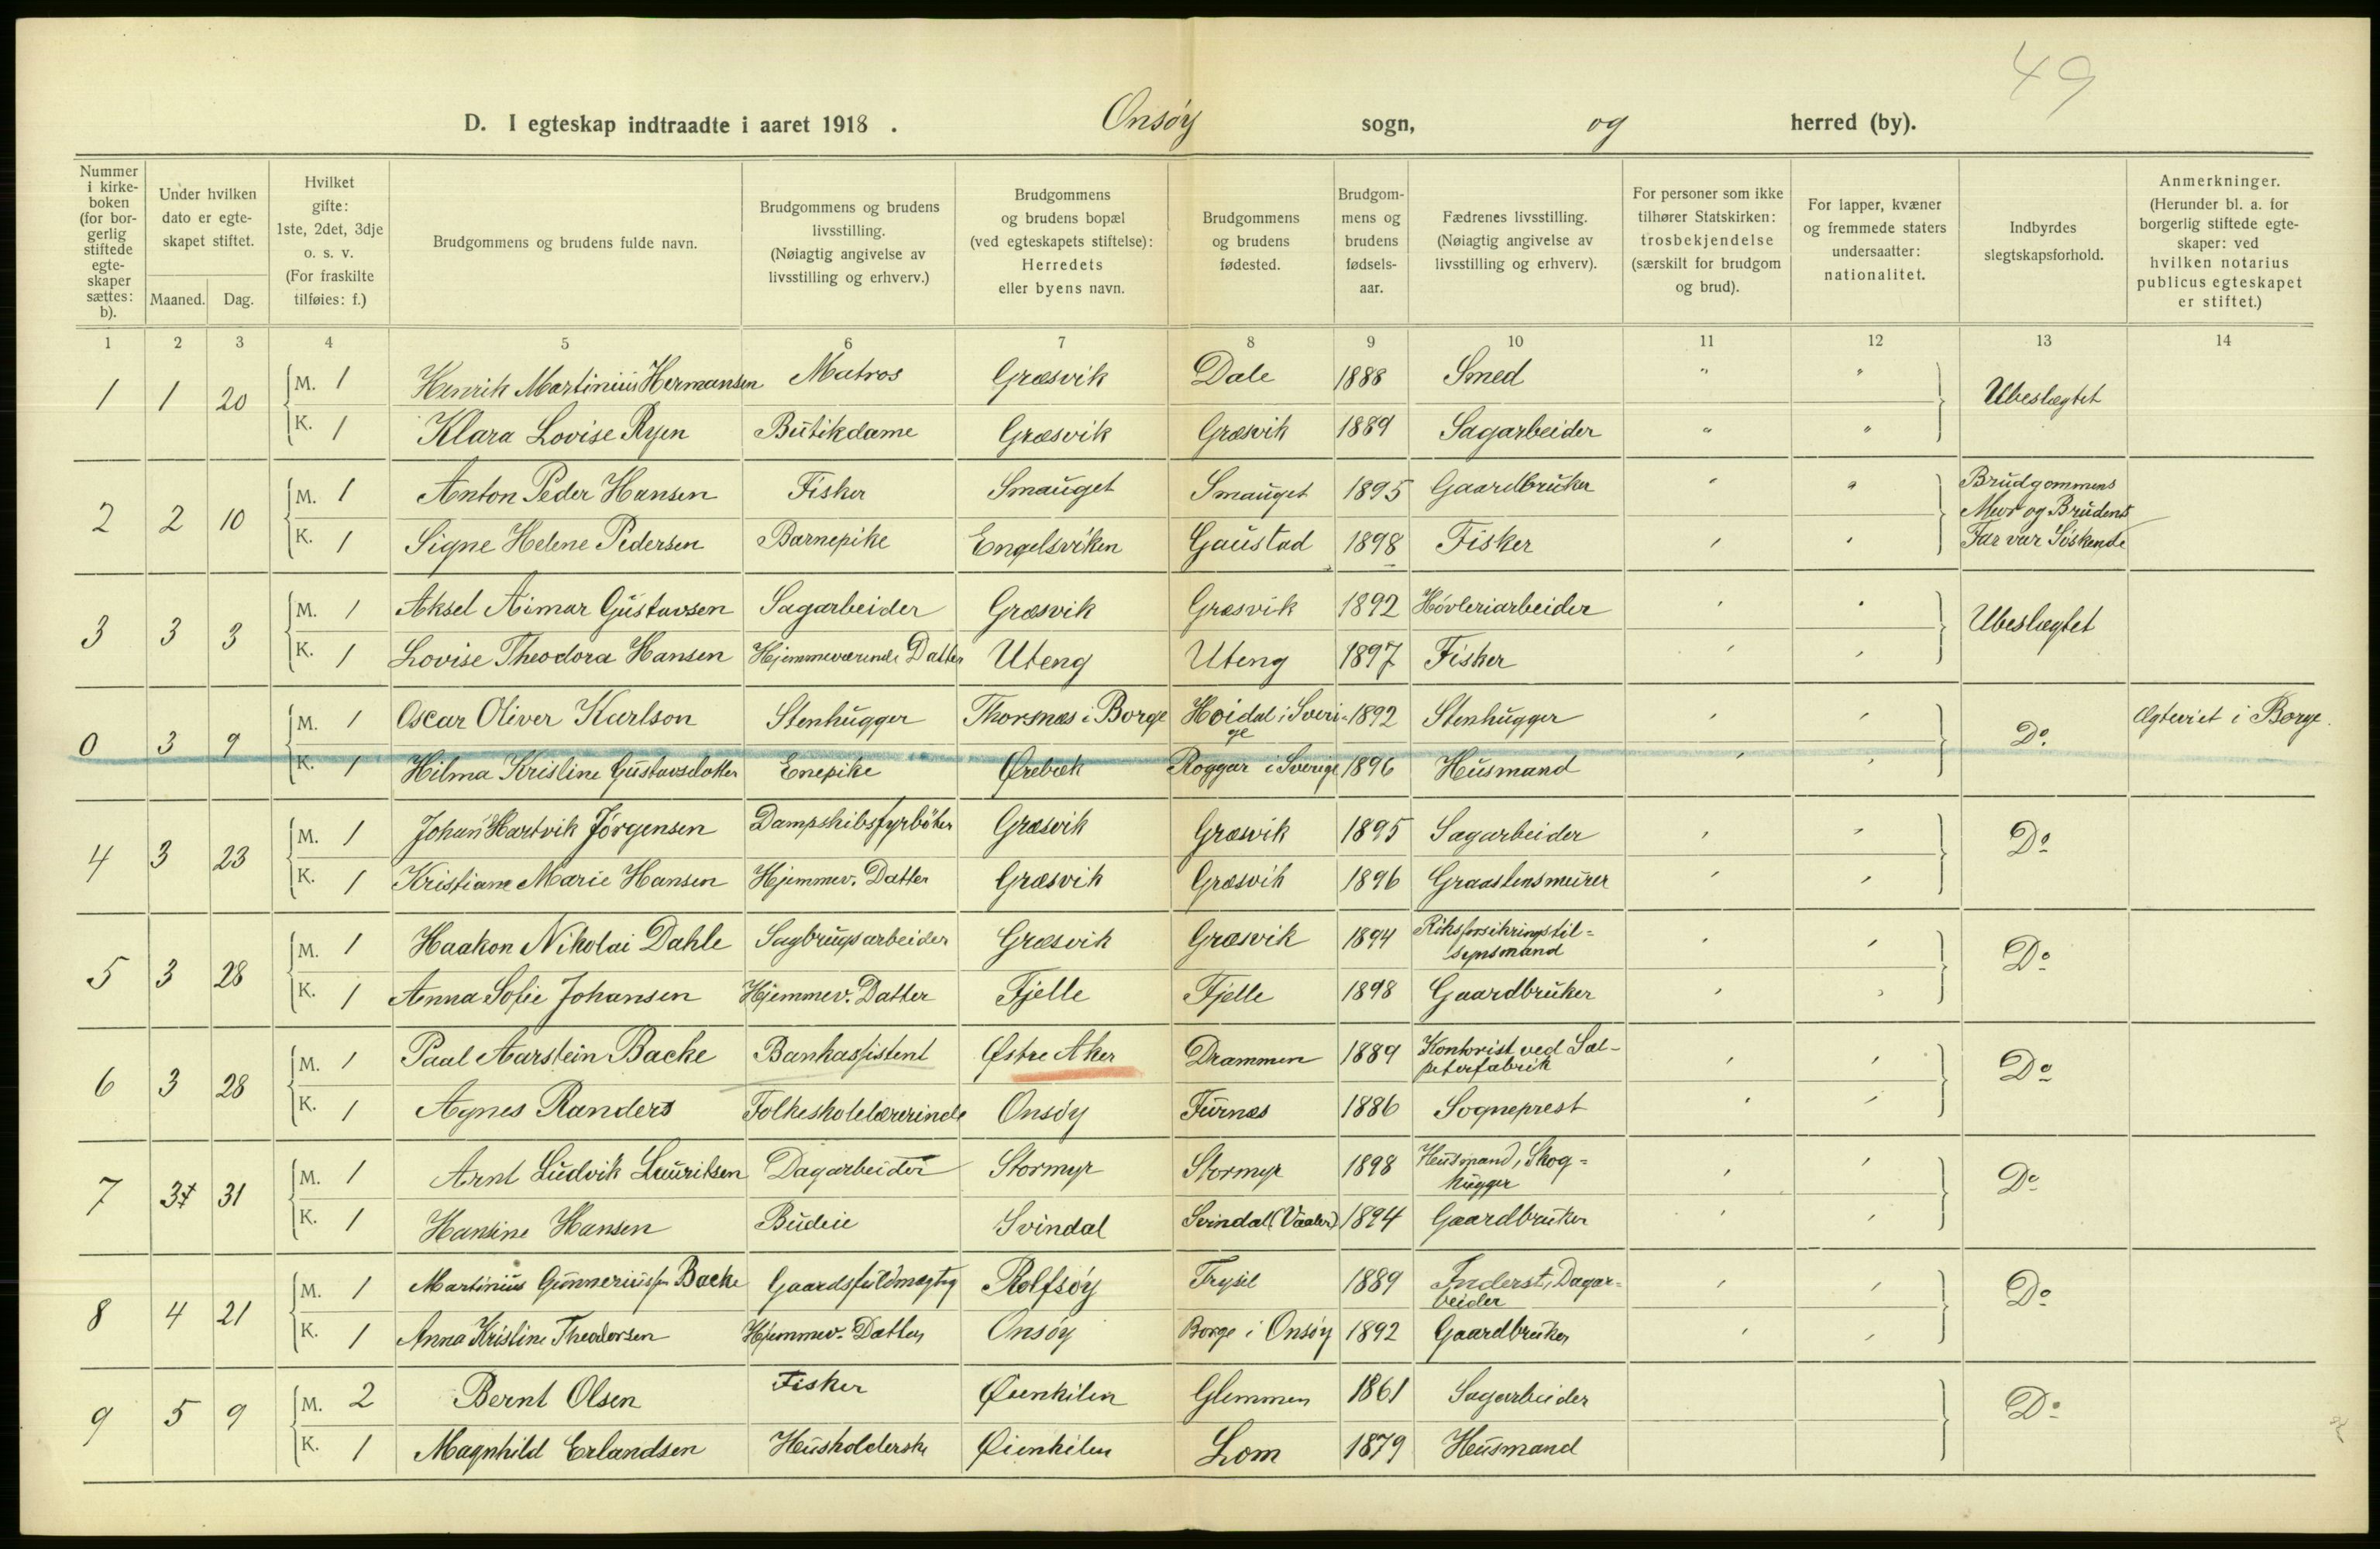 49
D. I egteskap indtraadte i aaret 1918 . Onsøy sogn, og herred (by).
Nummer i kirkeboken (for borgerlig stiftede egteskaper sættes: b).
Under hvilken dato er egteskapet stiftet.
Maaned. Dag.
Hvilket gifte: 1ste, 2det, 3dje o. s. v. (For fraskilte tilføies: f.)
Brudgommens og brudens fulde navn.
Brudgommens og brudens livsstilling. (Nøiagtig angivelse av livsstilling og erhverv.)
Brudgommens og brudens bopæl (ved egteskapets stiftelse): Herredets eller byens navn.
Brudgommens og brudens fødested.
Brudgommens og brudens fødselsaar.
Fædrenes livsstilling. (Nøiagtig angivelse av livsstilling og erhverv).
For personer som ikke tilhører Statskirken: trosbekjendelse (særskilt for brudgom og brud).
For lapper, kvæner og fremmede staters undersaatter: nationalitet.
Indbyrdes slegtskapsforhold.
Anmerkninger. (Herunder bl. a. for borgerlig stiftede egteskaper: ved hvilken notarius publicus egteskapet er stiftet.)
1 2 3 4 5 6 7 8 9 10 11 12 13 14
1 1 20 M. 1 Henrik Martinius Hermansen Matros Græsvik Dale 1888 Smed " " Ubeslægtet
K. 1 Klara Lovise Ryen Butikdame Græsvik Græsvik 1889 Sagarbeider " "
2 2 10 M. 1 Anton Peder Hansen Fisker Smauget Smauget 1895 Gaardbruker Brudgommens Mor og Brudens Far var Söskende
K. 1 Signe Helene Pedersen Barnepike Engelsviken Gaustad 1898 Fisker
3 3 3 M. 1 Aksel Aimar Gustavsen Sagarbeider Græsvik Græsvik 1892 Høvleriarbeider Ubeslægtet
K. 1 Lovise Theodora Hansen Hjemmeværende Datter Uteng Uteng 1897 Fisker
0 3 9 M. 1 Oscar Oliver Karlson Stenhugger Thorsnæs i Borge Hoidal i Sverige 1892 Stenhugger Do. Ægteviet i Borge.
K. 1 Hilma Kristine Gustavsdotter Enepike Ørebæk Roggar i Sverige 1896 Husmand
4 3 23 M. 1 Johan Hartvik Jörgensen Dampskibsfyrböter Græsvik Græsvik 1895 Sagarbeider Do
K. 1 Kristiane Marie Hansen Hjemmev. Datter Græsvik Græsvik 1896 Graastensmurer
5 3 28 M. 1 Haakon Nikolai Dahle Sagbrugsarbeider Græsvik Græsvik 1894 Riksforsikringstil=
synsmand Do
K. 1 Anna Sofie Johansen Hjemmev. Datter Fjelle Fjelle 1898 Gaardbruker
6 3 28 M. 1 Paal Aarstein Backe Bankassistent Østre Aker Drammen 1889 Kontorist ved Sal-
peterfabrik Do
K. 1 Agnes Randers Folkeskolelærerinde Onsøy Furnæs 1886 Sogneprest
7 3 31 M. 1 Arnt Ludvik Lauritsen Dagarbeider Stormyr Stormyr 1898 Husmand, Skog=
hugger Do
K. 1 Hansine Hansen Budeie Svindal Svindal (Vaaler) 1894 Gaardbruker
8 4 21 M. 1 Martinius Gunneriussen Backe Gaardsfuldmægtig Rolfsøy Trysil 1889 Inderst, Dagar=
beider Do
K. 1 Anna Kristine Theodorsen Hjemmev. Datter Onsøy Borge i Onsøy 1892 Gaardbruker
9 5 9 M. 2 Bernt Olsen Fisker Øienkilen Glemmen 1861 Sagarbeider Do
K. 1 Magnhild Erlandsen Husholderske Øienkilen Lom 1879 Husmand